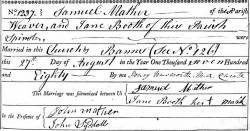 No. 1237. Samuel Mather of this Parish
Weaver, and Jane Booth of this Parish
Spinster, were
Married in this Church by Banns (See No. 726)
this 27th Day of August in the Year One Thousand Seven Hundred
and Eighty By me Henry
This Marriage was solemnized between Us Samuel Mather
Jane Booth her mark
In the Presence of John Mather
John